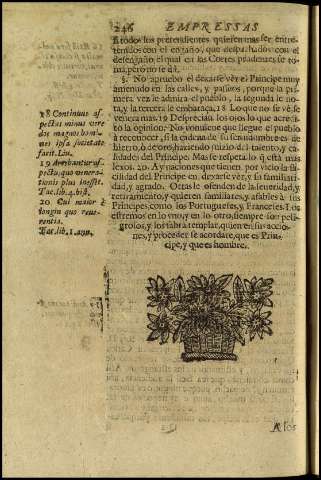 246 EMPRESSAS
A todos los pretendientes quieren mas ser entre-
tenidos con el engaño, que despachados con el
desengaño, el qual en las Cortes prudentes se to-
ma, pero no se dà.
§. No apruebo el dexarse vèr el Principe muy
amenudo en las calles, y passeos, porque la pri-
mera vez le admira el pueblo, la segunda le no-
ta, y la tercera le embaraça. 18 Lo que no se vè, se
venera mas. 19 Desprecian los ojos lo que acredi-
tò la opinion: No conviene que llegue el pueblo
à reconocer, si la cadena de su servidumbre es de
hierro, ò de oro, haziendo juizio del talento, y ca-
lidades del Principe. Mas se respeta lo q̃ està mas
lexos. 20. Ay naciones que tienen por vicio la fa-
cilidad del Principe en dexarse vèr, y su familiari-
dad, y agrado. Otras se ofenden de la seueridad, y
retiramiento, y quieren familiares, y afables à sus
Principes, como los Portugueses, y Franceses. Los
estremos en lo vno, y en lo otro, siempre son peli-
grosos, y los sabrà templar, quien en sus accio-
nes, y proceder se acordare, que es Prin-
cipe, y que es hombre.
18 Continuus as-
pectus minus vere
dos magnos homi-
nes ipsa societate
facit. Liu.
19 Arebantur as-
pectu, quo venera-
tionis plus inesset.
Tac. lib. 4. hist.
20. Cui maior è
longin quo reue-
rentia.
Tac. lib. 1. ann.
A los